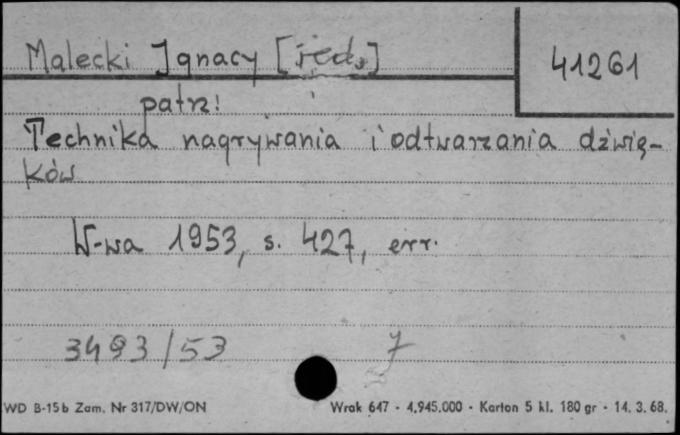 Malecki Ignacy [red.]
41261
patrz!
Technika nagrywania i odtwarzania dźwię-
ków
W-wa 1953, s. 427, err.
3493/53 7
WD B-15b Zam. Nr 317/DW/ON Wrak 647 - 4.945.000 - Karton 5 kl. 180 gr - 14. 3. 68.